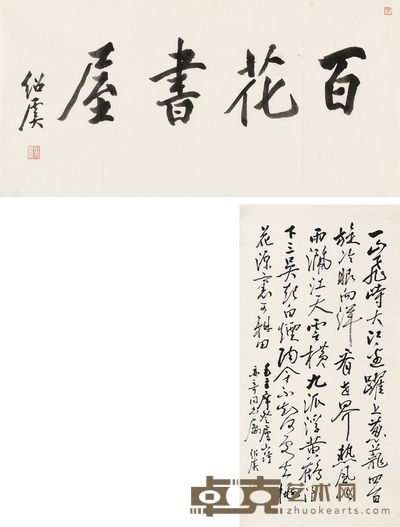 百花書屋
绍虞
一山飛峙大江邊躍上葱蘢四百
旋冷眼向洋看世界熱風吹
雨灑江天雲橫九派浮黄鶴浪
下三吴起白煙陶令不知何處去桃
花源裏可耕田
毛主席登廬山詩
绍虞
卓克艺术网
www.zhuokearts.com